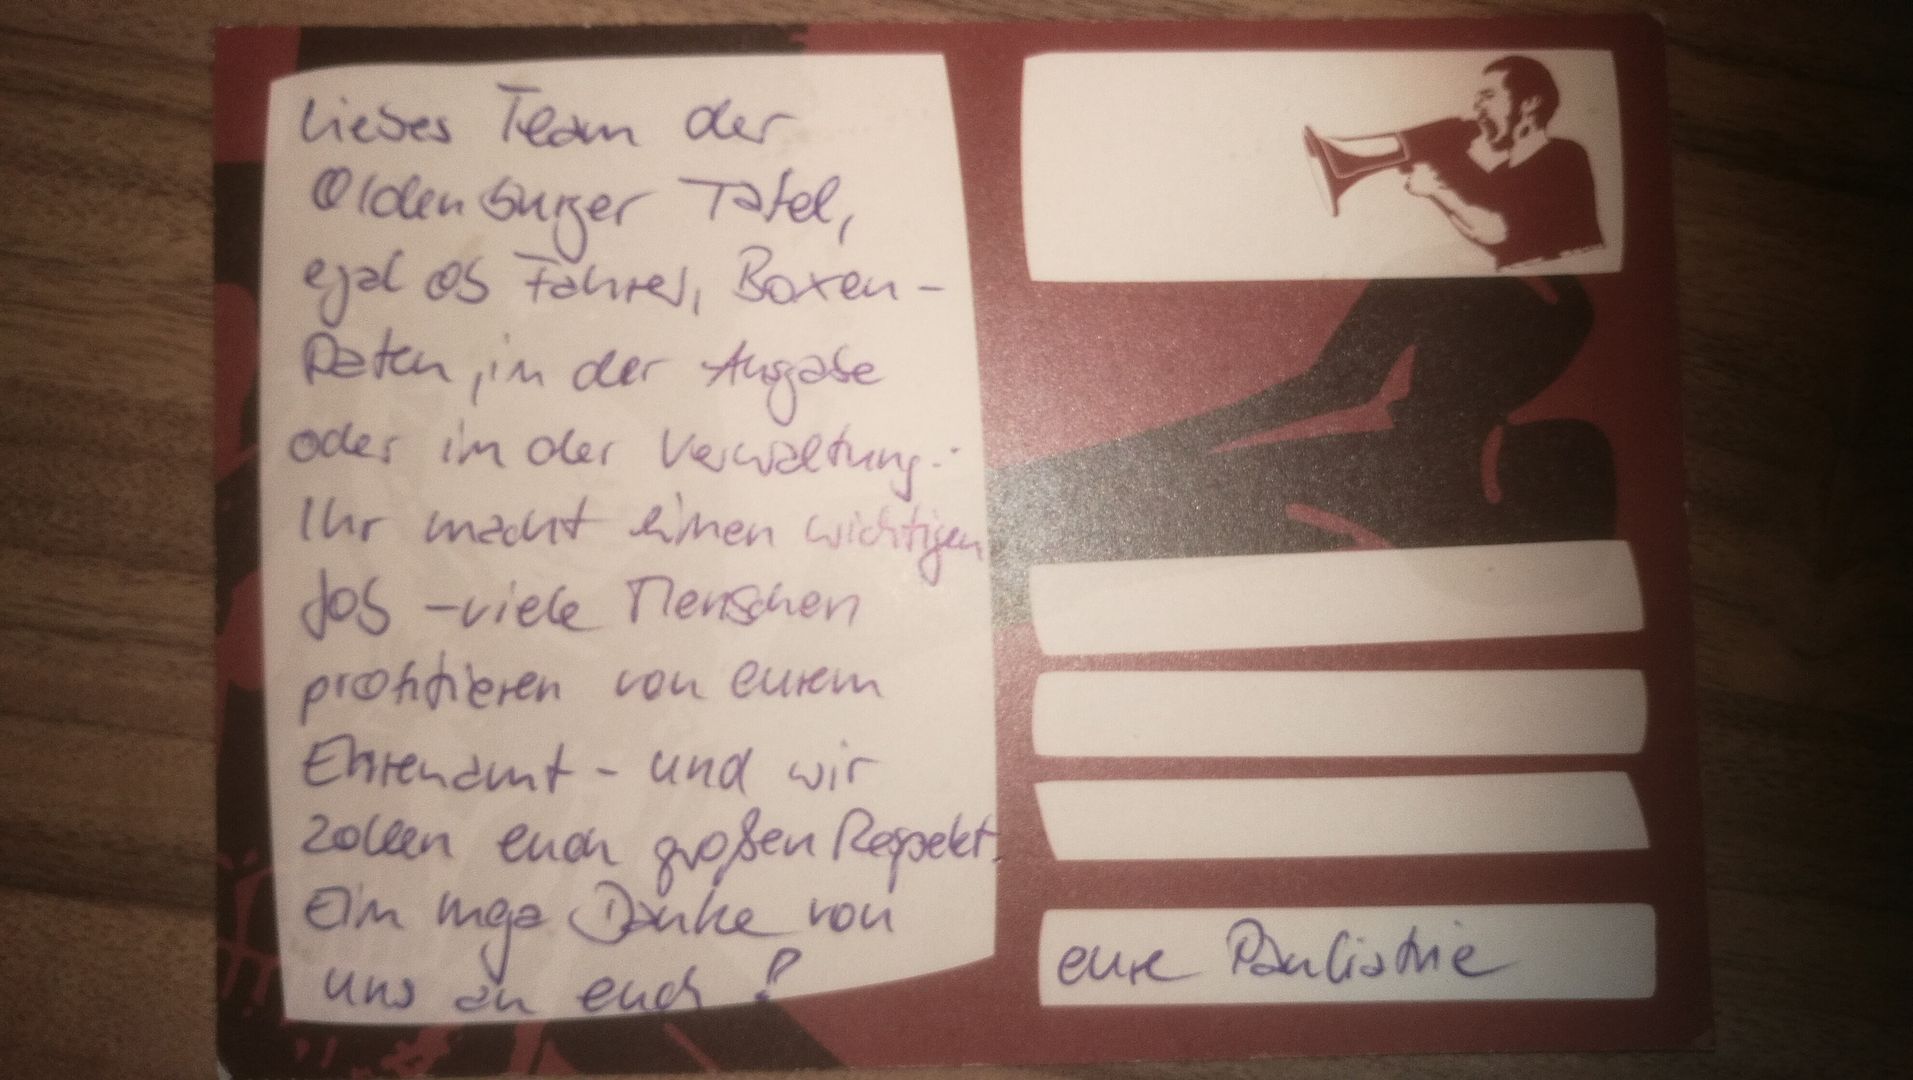 Liebes Team der
Oldenburger Tafel,
egal ob Fahrer, Boxen-
Paten, in der Ausgabe
oder in der Verwaltung.
Ihr macht einen wichtigen
Job - viele Menschen
profitieren von eurem
Ehrenamt - und wir
zollen euch großen Respekt.
Ein mega Danke von
uns an euch!
eure